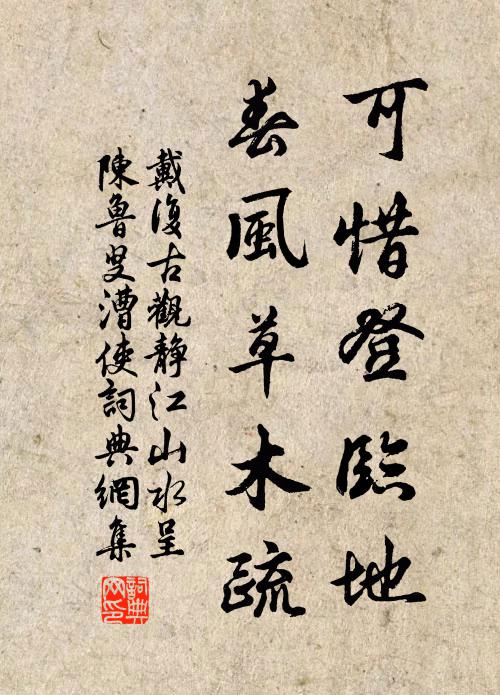 可惜登臨地
春風草木疏
戴復古觀静江山水呈
陳魯叟漕使詞典網集
詞典网印